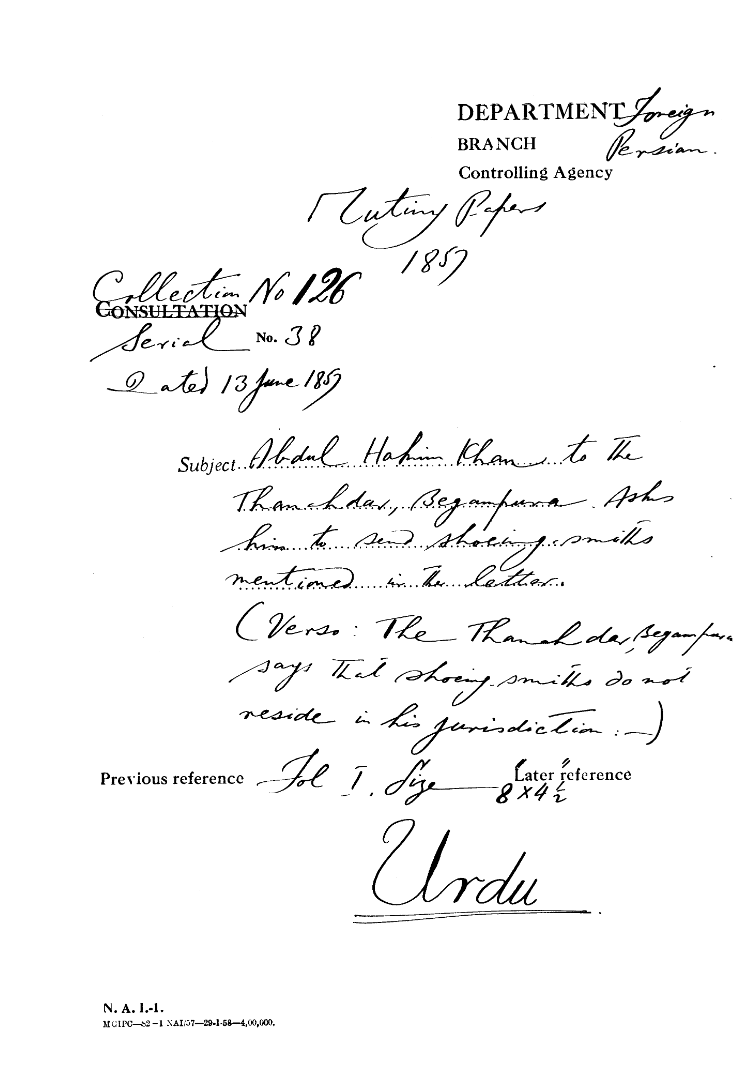 DEPARTMENT Foreign
BRANCH Persian.
Controlling Agency
Mutiny Papers
1857
Collection No 126
CONSULTATION
Serial No. 38
Dated 13 June 1857
Subject Abdul Hakim Khan to the
Thanahdar, Begampura. Asks
him to send shoeing smiths
mentioned in the letter.
(Verso: The Thanahdar, Begampura
says that shoeing smiths do not
reside in his jurisdiction :—)
Previous reference Fol I. Size Later reference
8" x 4 1/2
Urdu
N. A. I.-1.
MGIPC—S2—1 NAI/57—29-1-58—4,00,000.